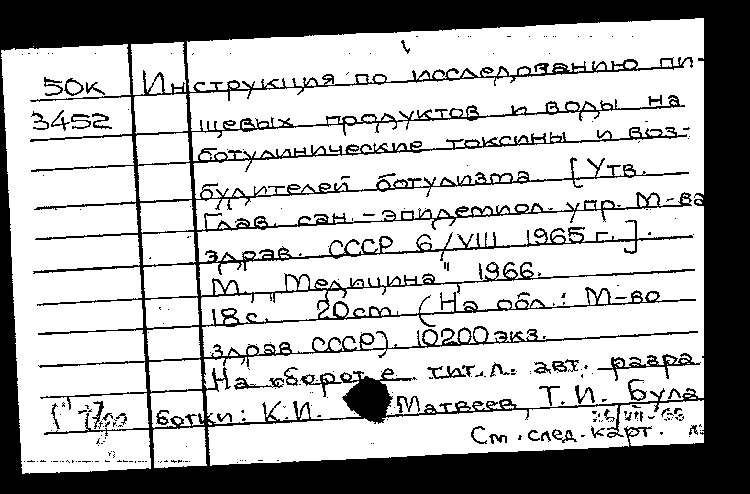 50к Инструкция по исследованию пи-
3452 щевых продуктов и воды на
ботулинические токсины и воз-
будителей ботулизма. [Утв.
Глав. сан.-эпидемиол. упр. М-ва
здрав. СССР 6/VIII 1965 г.].
М., "Медицина", 1966.
18 с. 20 см. (На обл.: М-во
здрав СССР). 10200 экз.
На оборот е тит. л. авт. разра
ботки: К.И. Матвеев, Т.И. Була
См. след. карт.